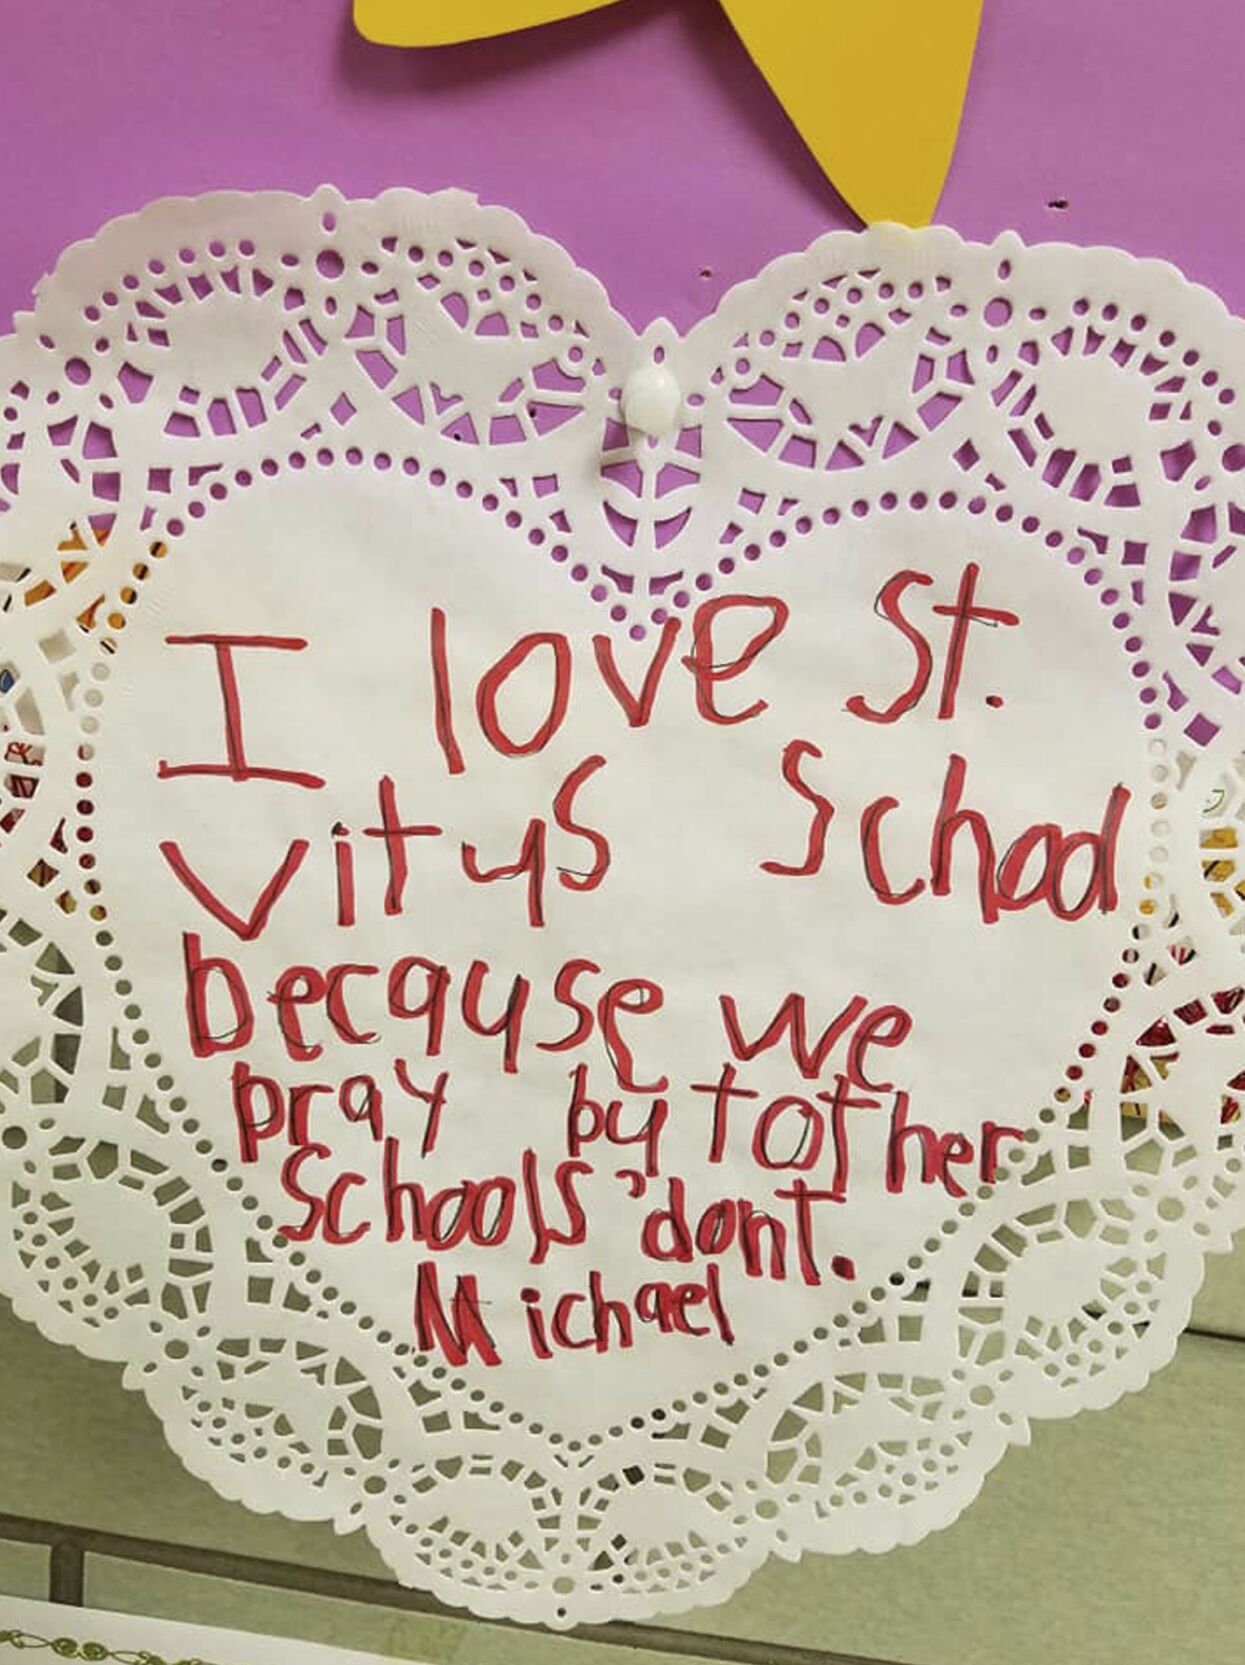 I love St.
Vitus School
because we
pray by tother
Schools' dont.
Michael